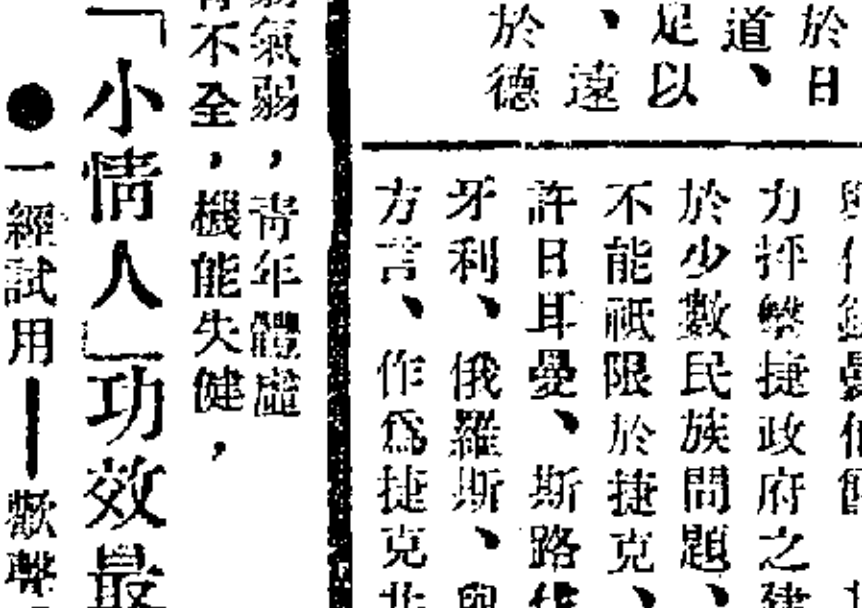 於日
道、
足以
、遠
於德
力抨擊捷政府之建
於少數民族問題、
不能祇限於捷克、
許日耳曼、斯路伐
牙利、俄羅斯、與
方言、作爲捷克北
弱氣弱，青年體虛
不全，機能失健，
「小情人」功效最
●一經試用——歡聲